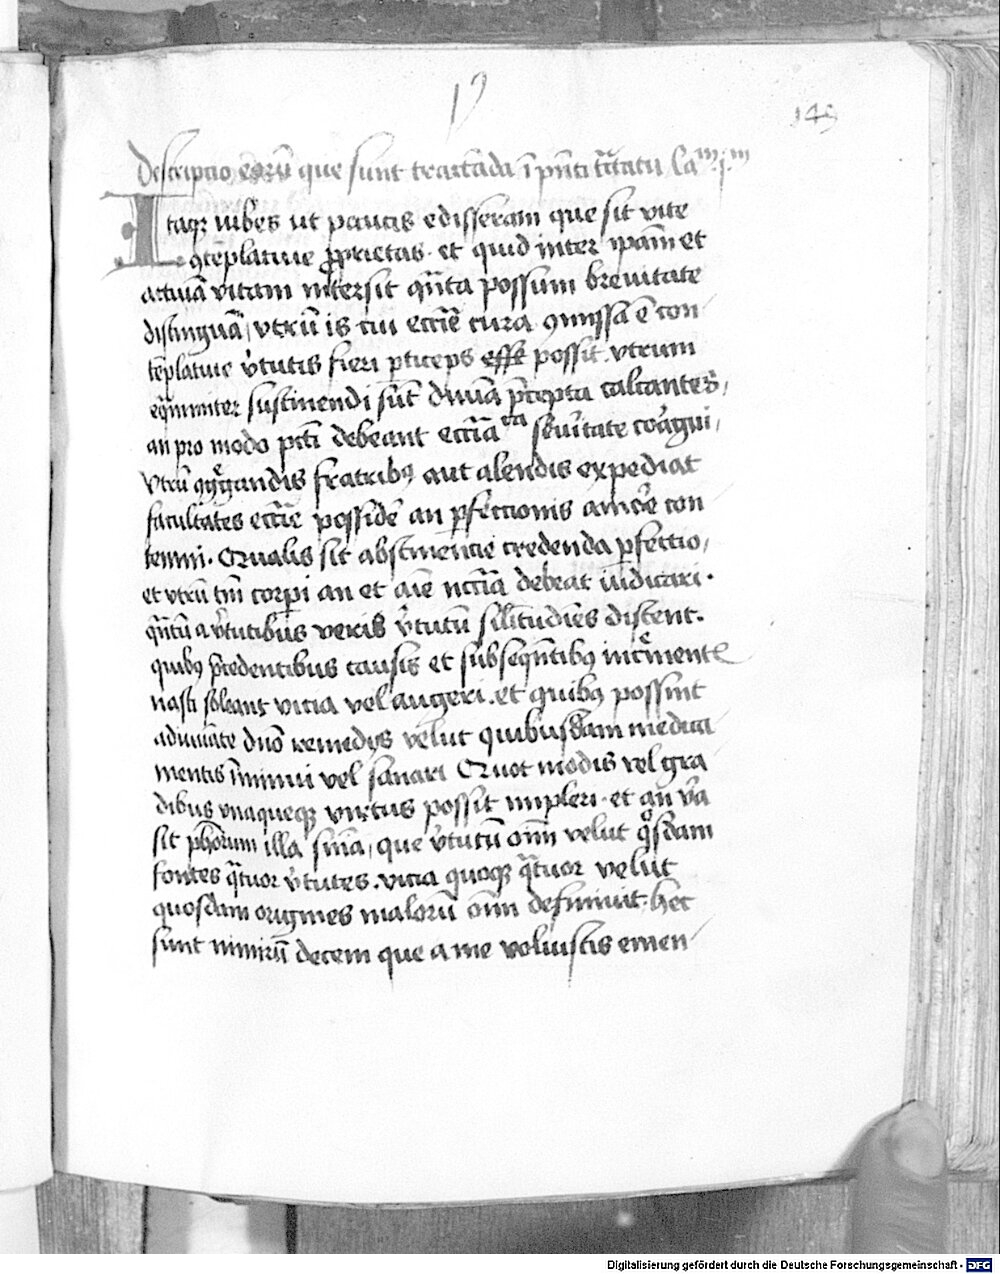 149
Descriptio eorū que sunt tractāda ī pn̄ti tractatu Camj̄m
Itaqꝫ iubes ut paucis edisseram que sit vite
9tēplatiue ꝓprietas. et quid inter ipam et
actiuā vitam intersit qn̄ta possum breuitate
distinguā, vtrū is cui eccīe cura 9missa ē con
tēplatiue v̄tutis fieri ꝑticeps esse possit. vtrum
eqnimiter sustinendi sūt diuiā p̄cepta calcantes,
an pro modo pcti debeant eccīastica seūitate coargui,
vtrū 9gregandis fratribꝰ aut alendis expediat
facultates eccīe possidē an ꝑfectionis amore con
temni. Qualis sit abstinencie credenda ꝑfectio,
et vtrū tm̄ corpi an et aīe nccīa debeat iudicari.
qn̄tū a v̄tutibus veris v̄tutū silitudīes distent.
quibꝰ p̄cedentibus causis et subseqn̄tibꝰ incremente
nasci soleant vicia vel augeri. et quibꝰ possint
adiuuāte dn̄o remedijs velut quibusdam medica
mentis īminui vel sanari Quot modis vel gra
dibus vnaqueqꝫ virtus possit impleri. et an v̄a
sit ph̄orum illa sn̄ia, que v̄tutū oīm velut qͦsdam
fontes qͣtuor v̄tutes. vicia quoqꝫ qͣtuor velut
quosdam origines malorū oīm definiuit. hec
sunt nimirū decem que a me voluistis emen
Digitalisierung gefördert durch die Deutsche Forschungsgemeinschaft - DFG